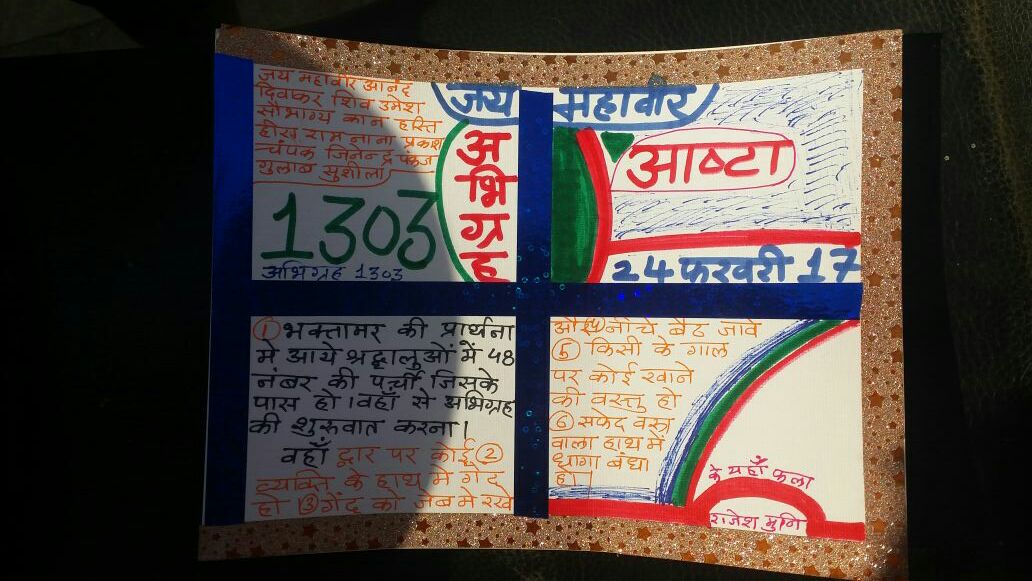 जय महावीर आनंद
दिवाकर शिव उमेश
सौभाग्य कान हस्ति
हीरा राम नाना प्रकाश
चंपक जिनेन्द्र पंकज
गुलाब सुशीला
1303
अभिग्रह 1303
जय महावीर
अभिग्रह
आष्टा
24 फरवरी 17
① भक्तामर की प्रार्थना
मे आये श्रद्धालुओं में 48
नंबर की पर्ची जिसके
पास हो। वहाँ से अभिग्रह
की शुरूवात करना।
वहाँ द्वार पर कोई ②
व्यक्ति के हाथ में गेंद
हो ③ गेंद को जेब मे रखे
और ④ नीचे बैठ जावे
⑤ किसी के गाल
पर कोई खाने
की वस्तु हो
⑥ सफेद वस्त्र
वाला हाथ में
धागा बंधा
हो।
के यहाँ फला
राजेश मुनि